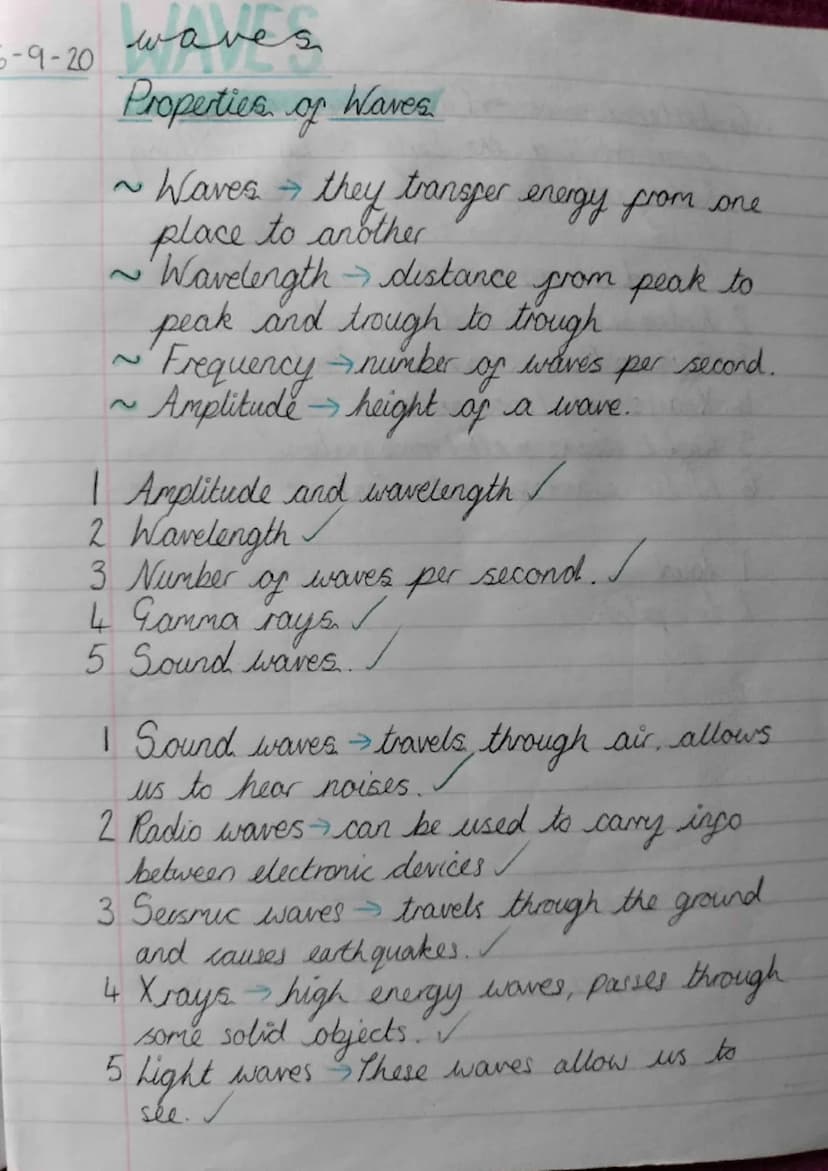 WAVES
waves
-9-20
Properties of Waves
~ Waves → they transfer energy from one
place to another
~ Wavelength → distance from peak to
peak and trough to trough
~ Frequency → number of waves per second.
~ Amplitude → height of a wave.
1 Amplitude and wavelength ✓
2 Wavelength ✓
3 Number of waves per second. ✓
4 Gamma rays ✓
5 Sound waves. ✓
1 Sound waves → travels through air, allows
us to hear noises. ✓
2 Radio waves → can be used to carry info
between electronic devices ✓
3 Seismic waves → travels through the ground
and causes earthquakes. ✓
4 X rays → high energy waves, passes through
some solid objects. ✓
5 Light waves → These waves allow us to
see. ✓